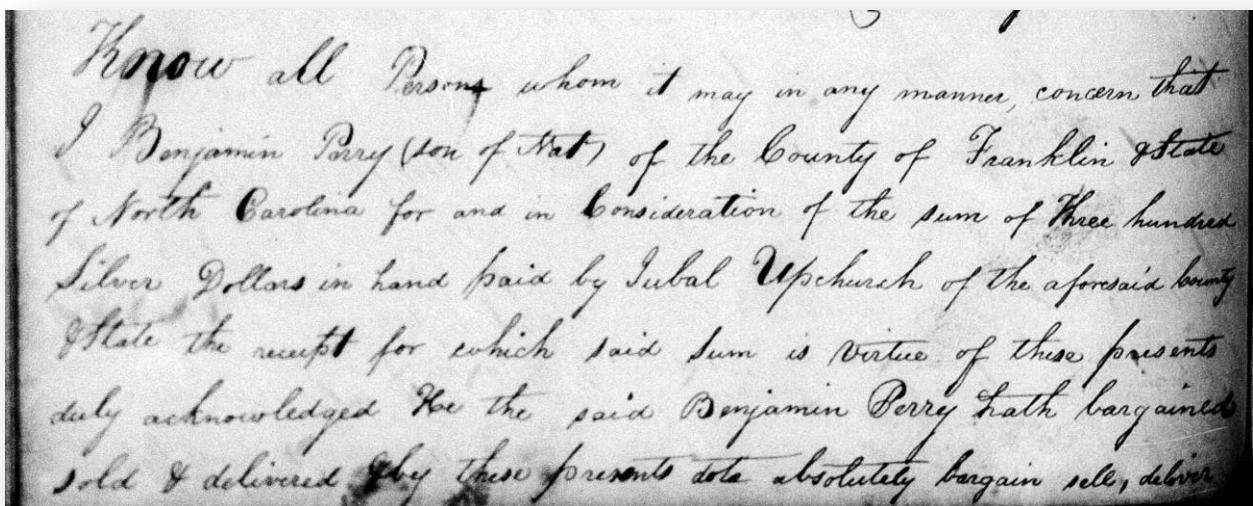 Know all Persons whom it may in any manner, concern that
I Benjamin Perry (son of Nat) of the County of Franklin & State
of North Carolina for and in Consideration of the sum of Three hundred
Silver Dollars in hand paid by Jubal Upchurch of the aforesaid County
& State the receipt for which said sum is virtue of these presents
duly acknowledged He the said Benjamin Perry hath bargained
sold & delivered & by these presents doth absolutely bargain sell, deliver